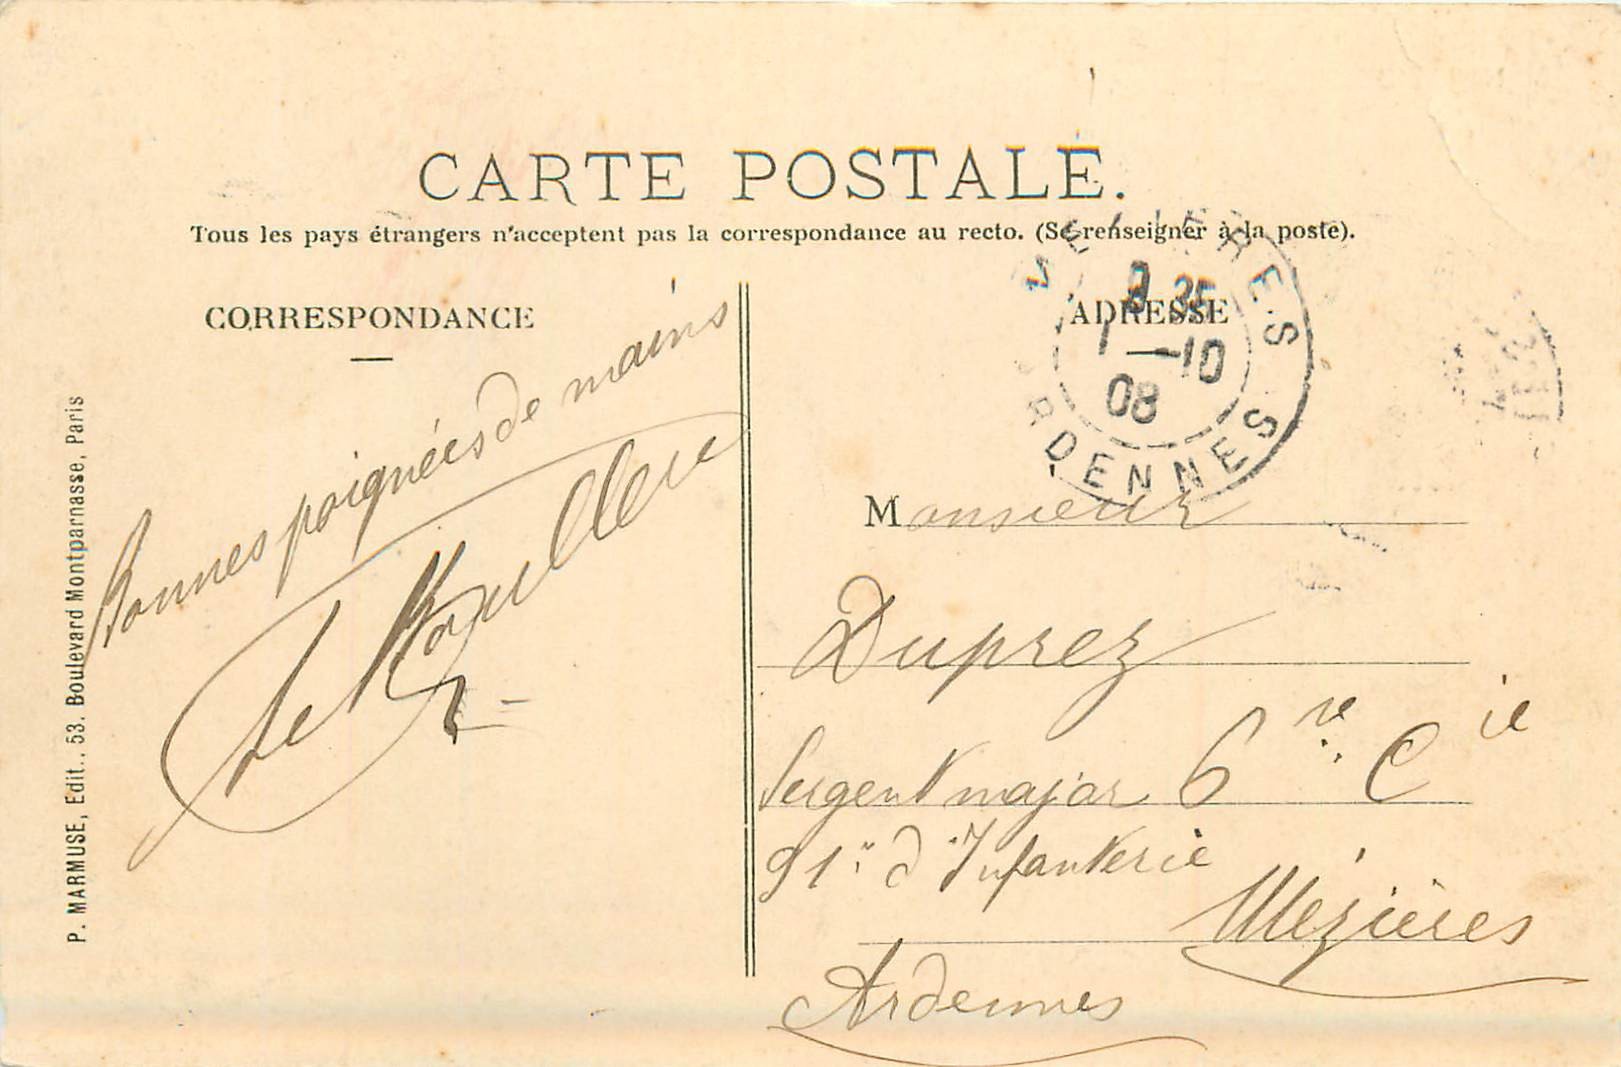 CARTE POSTALE.
Tous les pays étrangers n'acceptent pas la correspondance au recto. (Se renseigner à la poste).
CORRESPONDANCE
Bonnes poignées de mains
P. MARMUSE, Edit., 53. Boulevard Montparnasse, Paris
ADRESSE
8 35
1 -10
08
ARDENNES
Monsieur
Duprez
Sergent major 6e Cie
91e d'Infanterie
Mézières
Ardennes